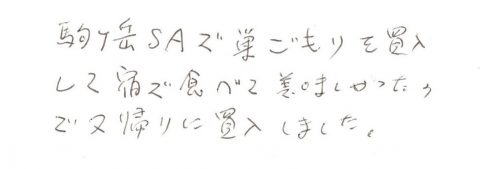 駒ヶ岳SAで巣ごもりを買入
して宿で食べて美味しかったの
で又帰りに買入しました。